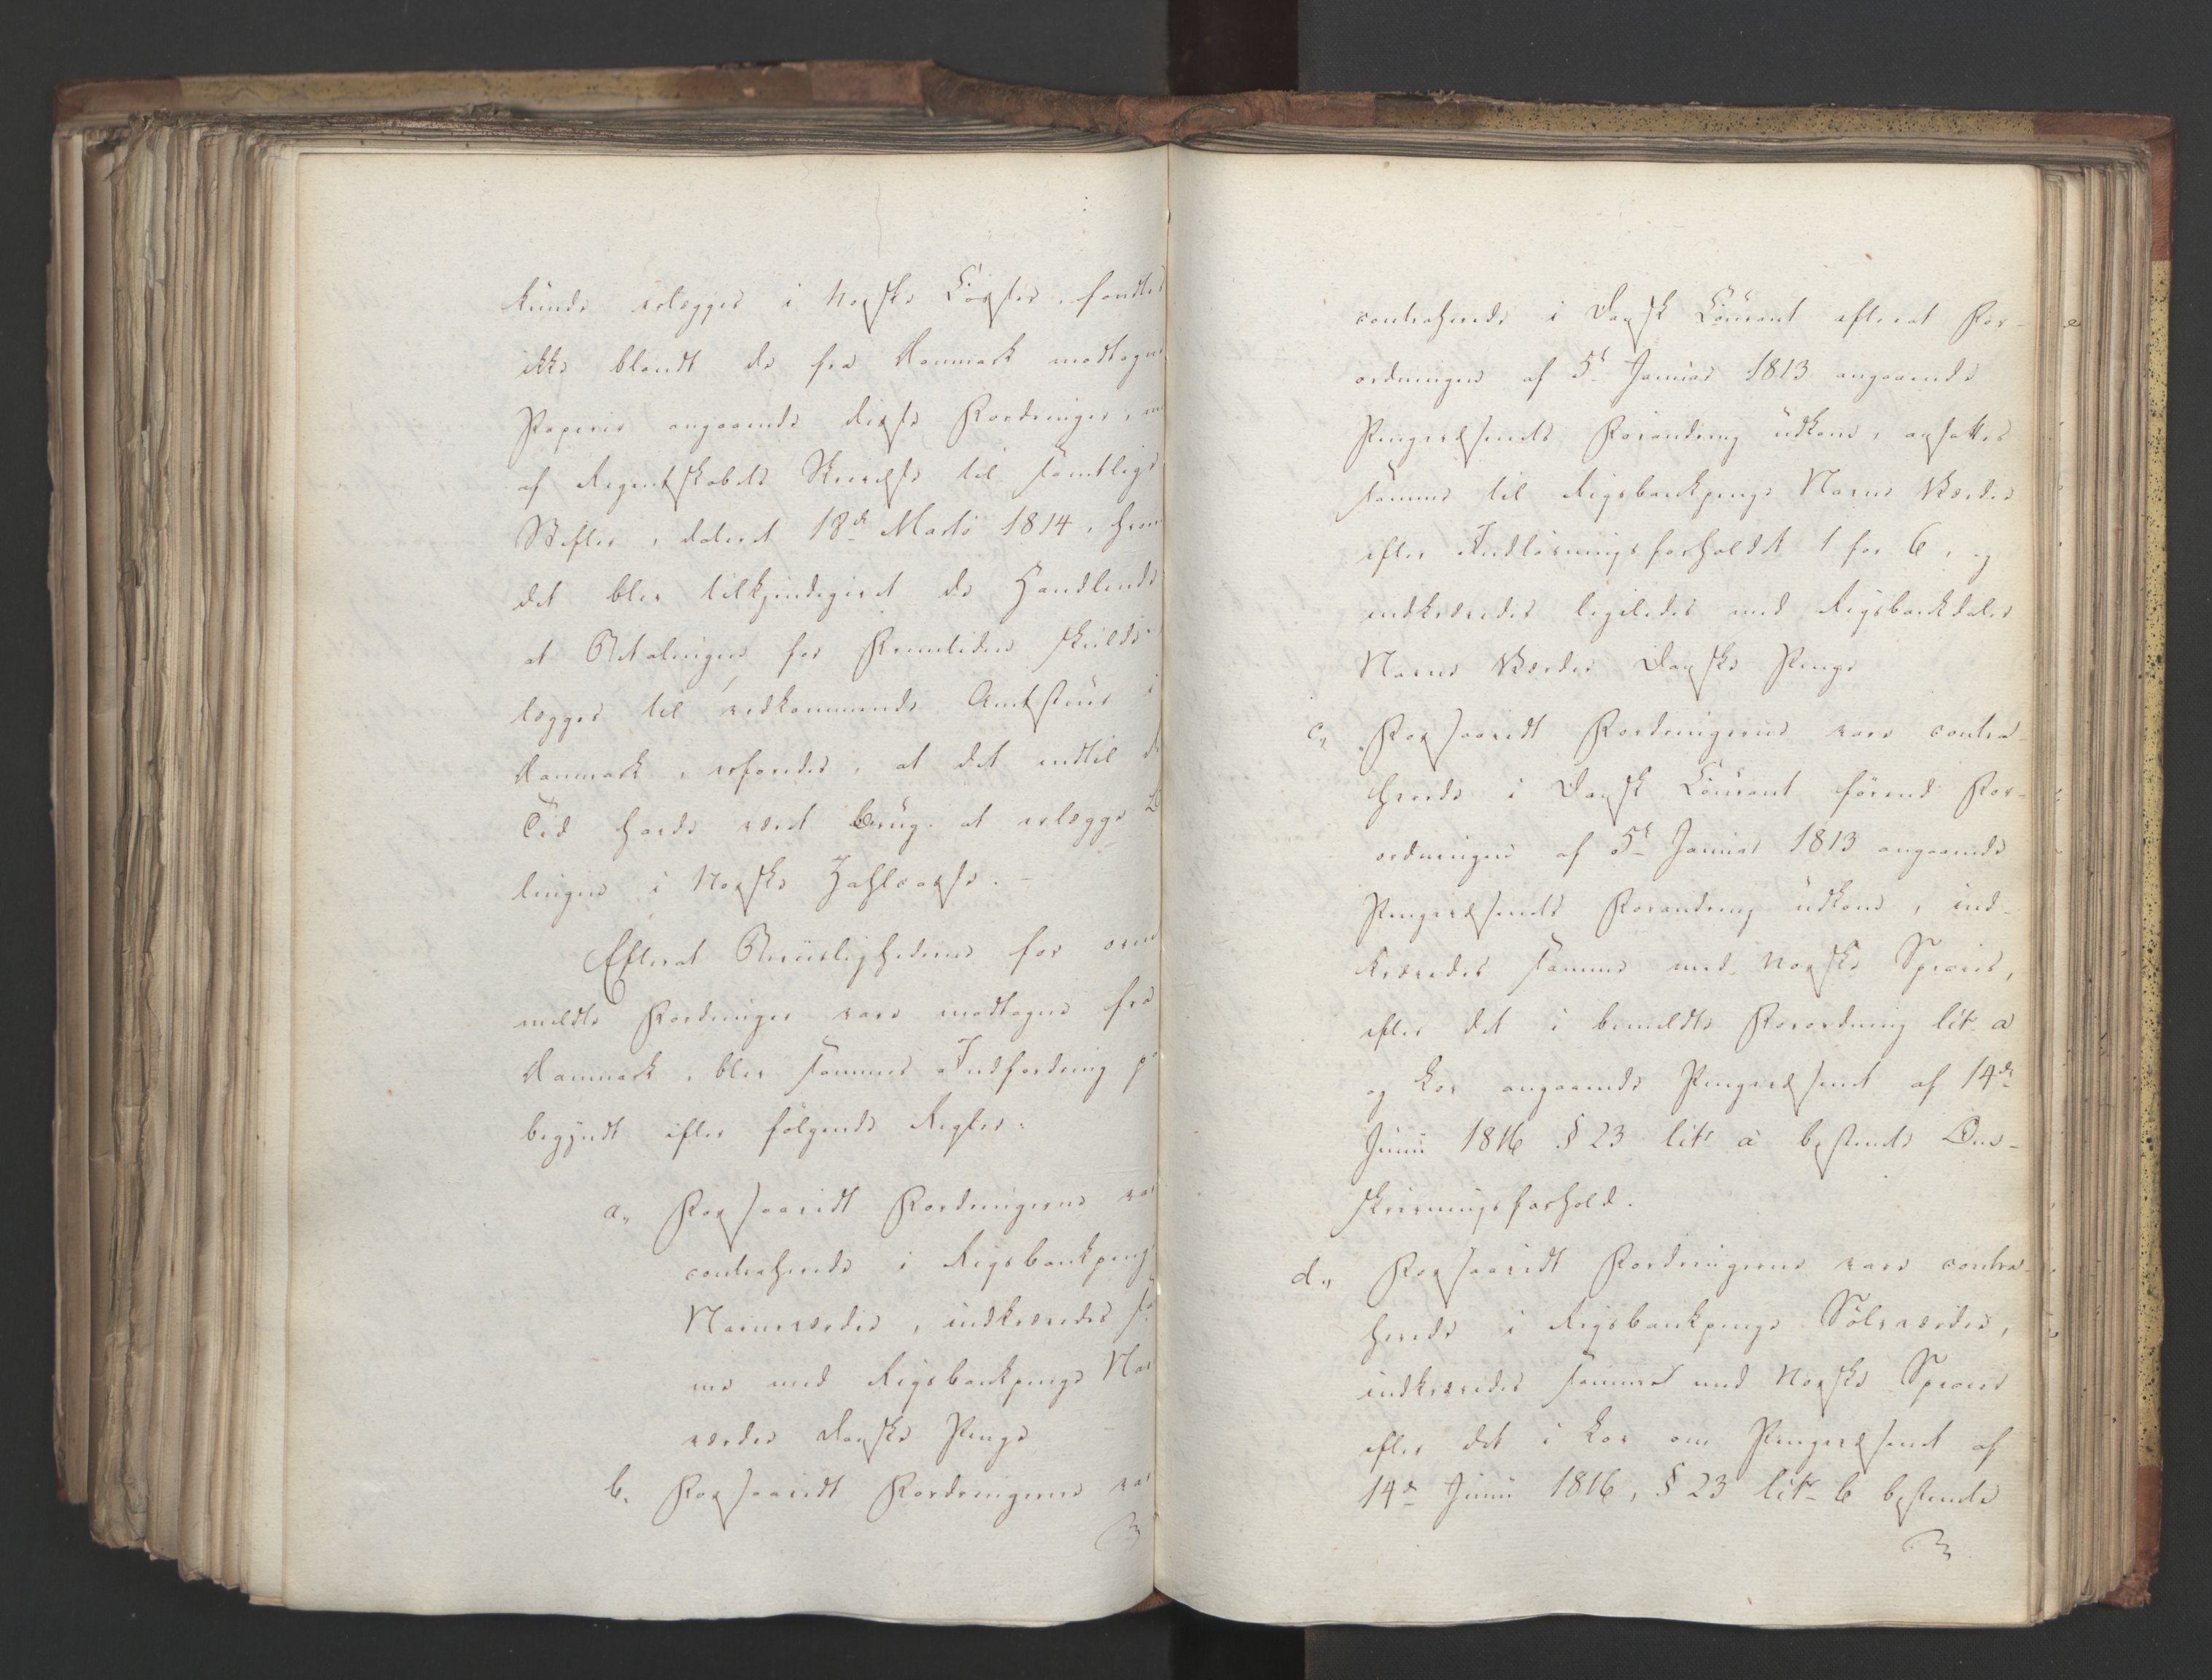 kunde erlægges i Norske Courser, fandtes
ikke blandt de fra Danmark modtagne
Papirer angaaende disse Fordringer, m
af Regentskabets Skrivelse til samtlige
Stifter, dateret 18de Marts 1814, hvor
det blev tilkjendegivet de Handlende
at Betalingen for Fremtiden skulde
lægges til vedkommende Amtstue i
Danmark, erfares, at det indtil d
Tid havde været Brug at erlægge B
lingen i Norske Zahlcasse.
Efterat Beviisligheden for oven
meldte Fordringer vare modtagne fra
Danmark, blev sammes Indfordring p
begyndt efter følgende Regler:
a, Forsaavidt Fordringerne var
contraherede i Rigsbankpenge
Navneværdie, indkrævedes sa
me med Rigsbankpenge Nav
værdie Danske Penge
b. Forsaavidt Fordringerne var
contraherede i Dansk Courant efterat For-
ordningen af 5te Januar 1813 angaaende
Pengevæsenets Forandring udkom, ansattes
samme til Rigsbankpenge Navne Værdie
efter Indløsningsforholdet 1 for 6, og
indkrævedes ligeledes med Rigsbankdaler
Navne Værdie Danske Penge
c, Forsaavidt Fordringerne vare contra-
herede i Dansk Courant førend For-
ordningen af 5te Januar 1813 angaaende
Pengevæsenets Forandring udkom, ind-
krævedes samme med Norske Specier,
efter det i bemeldte Forordning litr a
og Lov angaaende Pengevæsenet af 14de
Junii 1816 § 23 litr a bestemte Om-
skrivningsforhold.
d., Forsaavidt Fordringerne vare contra-
herede i Rigsbankpenge Sølvværdie,
indkrævedes samme med Norske Specier
efter det i Lov om Pengevæsenet af
14de Junii 1816, § 23 litr b bestemte